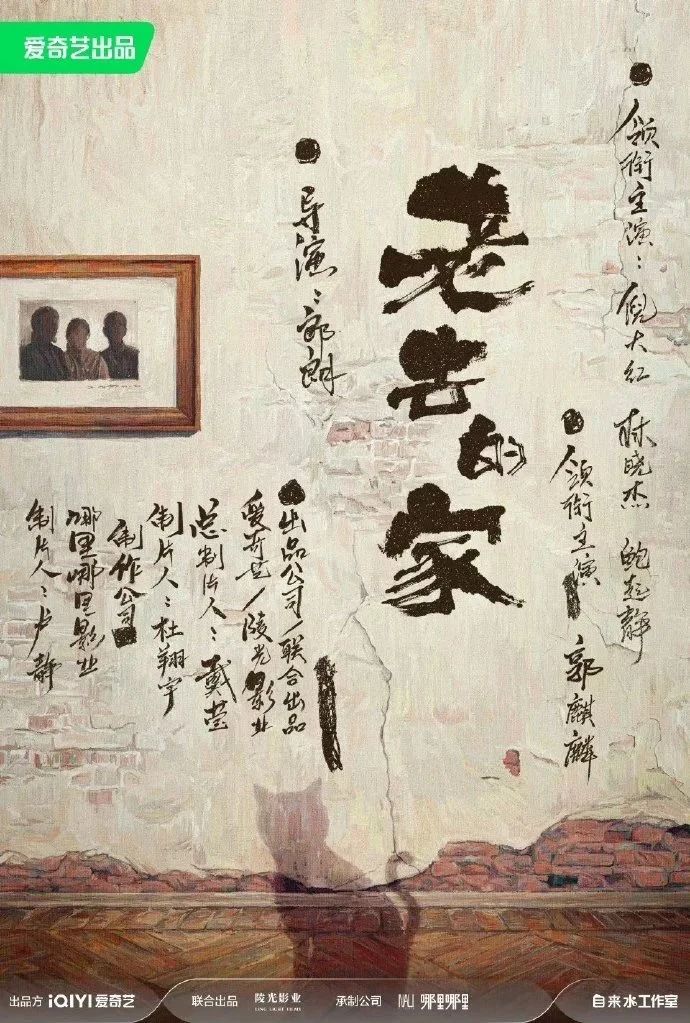 爱奇艺出品
领衔主演：倪大红 林晓杰 鲍起静
领衔主演 郭麒麟
老去的家
导演：郎朗
出品公司/联合出品
爱奇艺/陵光影业
总制片人：戴莹
制片人：杜翔宇
制作公司
哪里哪里影业
制片人：卢静
出品方 iQIYI 爱奇艺
联合出品 陵光影业
LING LIGHT FILMS
承制公司 NALI 哪里哪里
自来水工作室